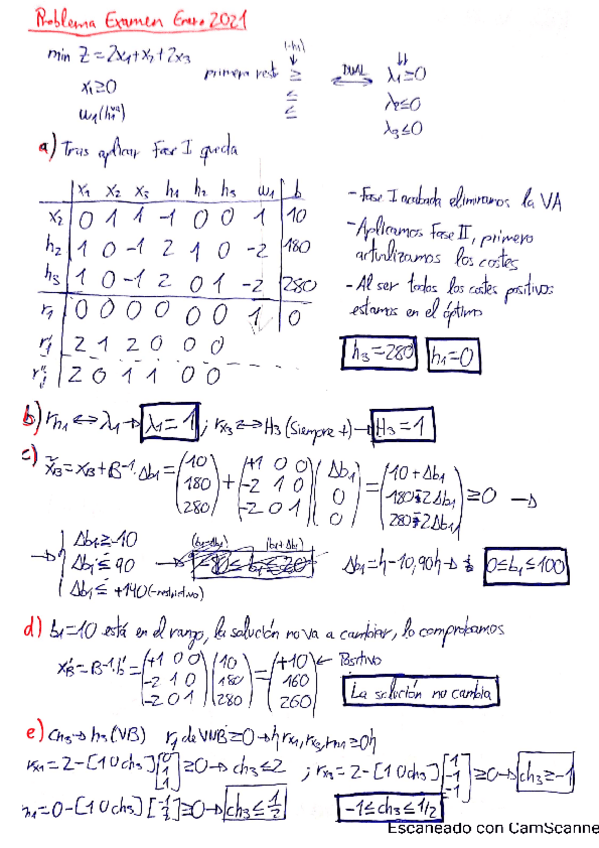 Problema Examen Enero 2021
min Z = 2x₁+x₂+2x₃
x₁≥0
primera rest ≥
≤
≤
(-h₁)
↓
DUAL
⟷
↓↓
λ₁≥0
λ₂≤0
λ₃≤0
a) Tras aplicar Fase I queda
x₁ x₂ x₃ h₁ h₂ h₃ w₁ b
x₂ 0 1 1 -1 0 0 1 10
h₂ 1 0 -1 2 1 0 -2 180
h₃ 1 0 -1 2 0 1 -2 280
r₁ 0 0 0 0 0 0 1 0
r'j 2 1 2 0 0 0
r''j 2 0 1 1 0 0
- Fase I acabada eliminamos la VA
- Aplicamos Fase II, primero
actualizamos los costes
- Al ser todos los costes positivos
estamos en el óptimo
h₃=280 h₁=0
b) rh₁ ↔ λ₁ → λ₁=1 ; rx₃ ↔ H₃ (Siempre +) → H₃=1
c) x̃B = xB + B⁻¹·Δb₁ = (10 180 280) + (+1 0 0 -2 1 0 -2 0 1) (Δb₁ 0 0) = (10+Δb₁ 180-2Δb₁ 280-2Δb₁) ≥0 →
→ { Δb₁≥-10
Δb₁≤90
Δb₁≤+140 (-restrictivo)
Δb₁=h-10,90h → 0≤b₁≤100
d) b₁=10 está en el rango, la solución no va a cambiar, lo comprobamos
x'B = B⁻¹·b' = (+1 0 0 -2 1 0 -2 0 1) (10 180 280) = (+10 160 260) ← Positivo
La solución no cambia
e) ch₃ → h₃ (VB) rj de VNB ≥0 → h rx₁, rx₃, rh₁ ≥0h
rx₁ = 2-[1 0 ch₃] [0 1 1] ≥0 → ch₃≤2 ; rx₃ = 2-[1 0 ch₃] [1 -1 -1] ≥0 → ch₃≥-1
≥0 → ch₃≤1/2 -1≤ch₃≤1/2
Escaneado con CamScanne